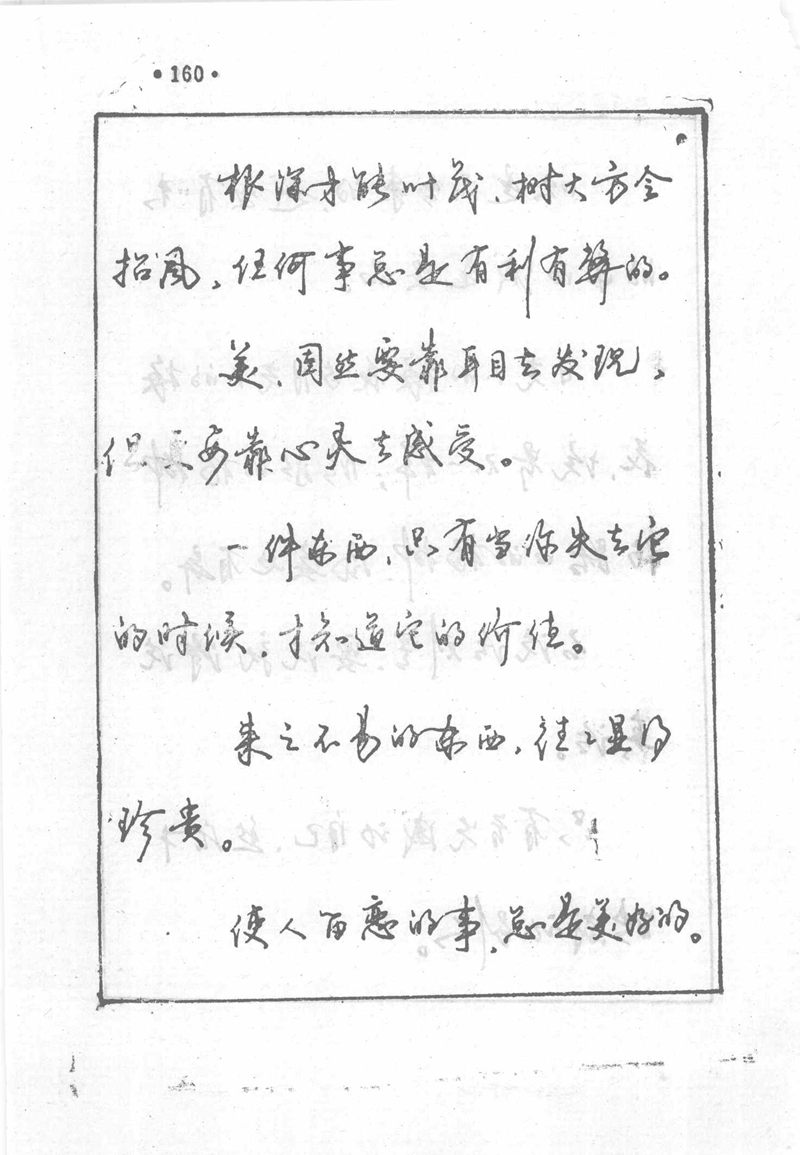 •160•
根深才能叶茂、树大方会
招风，任何事总是有利有弊的。
美，固然要靠耳目去发现，
但更要靠心灵去感受。
一件东西，只有当你失去它
的时候，才知道它的价值。
来之不易的东西，往往显得
珍贵。
使人留恋的事，总是美好的。